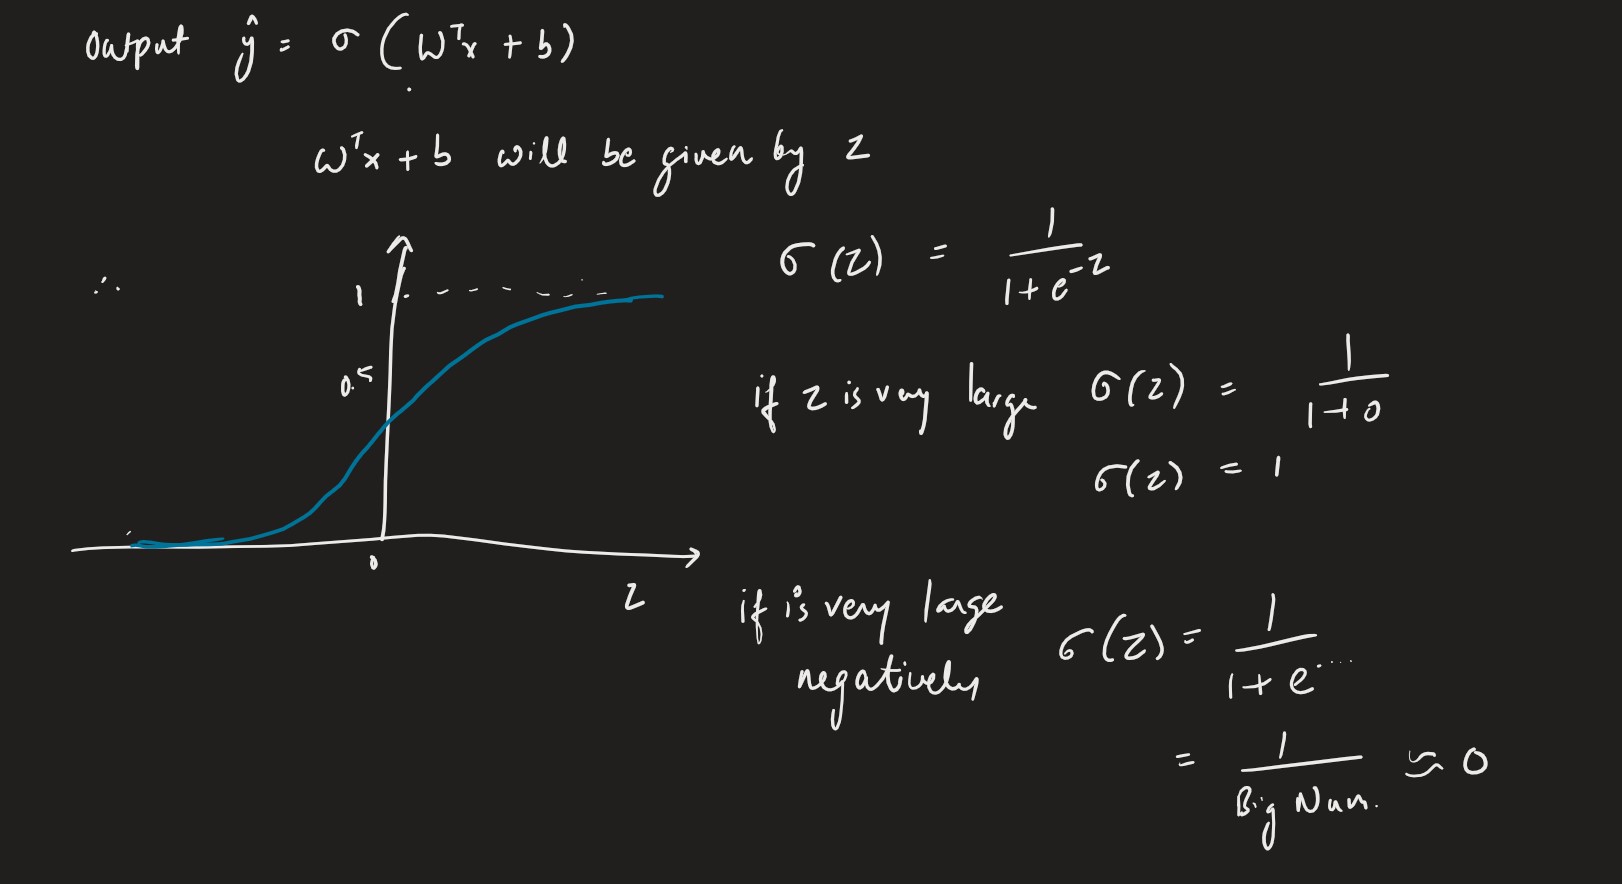 Output ŷ = σ (Wᵀx + b)
ωᵀx + b will be given by z
∴
1
0.5
0
z
σ(z) = 1 / 1 + e⁻ᶻ
if z is very large σ(z) = 1 / 1 + 0
σ(z) = 1
if is very large
negatively
σ(z) = 1 / 1 + e^.....
= 1 / Big Num. ≈ 0